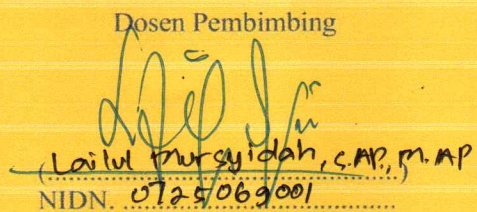 Dosen Pembimbing
(Lailul Mursyidah, S.AP, M.AP)
NIDN. 0725069001